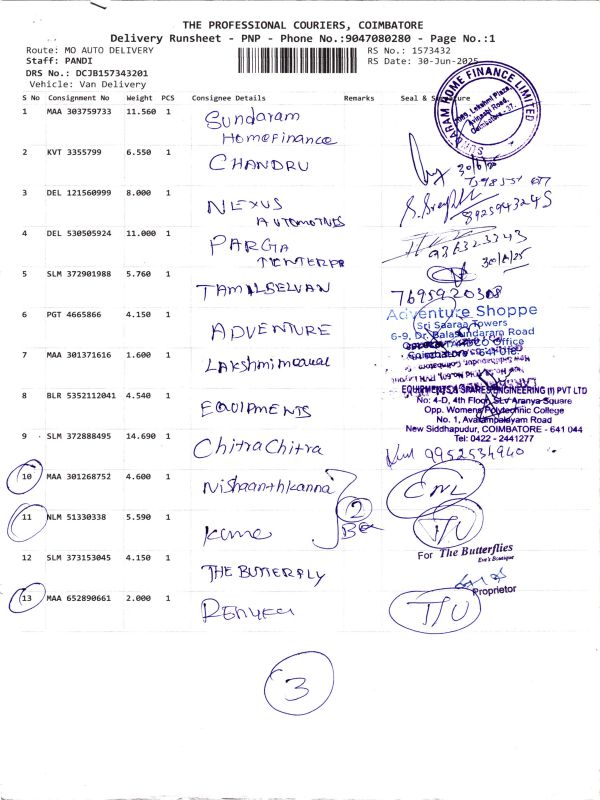 THE PROFESSIONAL COURIERS, COIMBATORE
Delivery Runsheet - PNP - Phone No.:9047080280 - Page No.:1
Route: MO AUTO DELIVERY
RS No.: 1573432
Staff: PANDI
RS Date: 30-Jun-2025
DRS No.: DCJB157343201
Vehicle: Van Delivery
S No Consignment No Weight PCS Consignee Details Remarks Seal & Signature
SUNDARAM HOME FINANCE LIMITED
1 MAA 303759733 11.560 1 Sundaram
HomeFinance
2 KVT 3355799 6.550 1 CHANDRU
30/6/25
3 DEL 121560999 8.000 1 NEXUS
AUTOMOTIVES
8925943245
4 DEL 530505924 11.000 1 PARGA
936323343
30/6/25
5 SLM 372901988 5.760 1 TAMILSELVAN
7695920308
6 PGT 4665866 4.150 1 ADVENTURE
Adventure Shoppe
Sri Saaraa Towers
6-9, Dr. Balasundaram Road
7 MAA 301371616 1.600 1 Lakshmi
8 BLR 5352112041 4.540 1 EQUIPMENTS
EQUIPMENTS & SPARES ENGINEERING (I) PVT LTD
No: 4-D, 4th Floor, SLV Aranya Square
Opp. Womens Polytechnic College
No. 1, Avarampalayam Road
New Siddhapudur, COIMBATORE - 641 044
Tel: 0422 - 2441277
9 SLM 372888495 14.690 1 Chitra Chitra
9952534940
10 MAA 301268752 4.600 1 Nishaanthkanna
CNL
2
11 NLM 51330338 5.590 1
Box
T/U
12 SLM 373153045 4.150 1 THE BUTTERFLY
For The Butterflies
Eve's Boutique
Proprietor
13 MAA 652890661 2.000 1 RENUKA
T/U
3